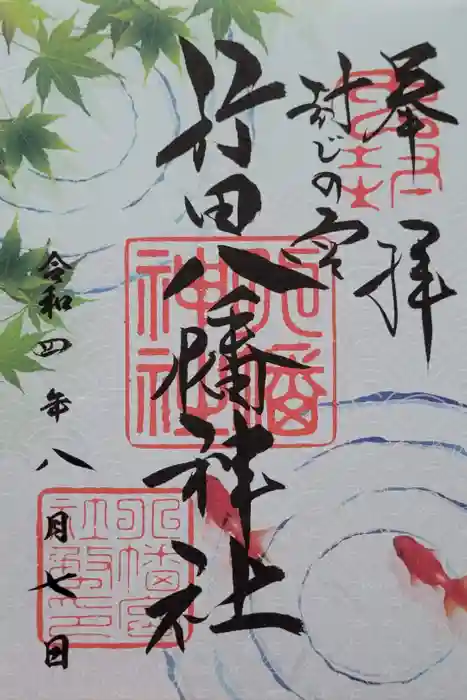 奉拝
封じの宮
行田八幡神社
八幡神社
令和四年八月七日